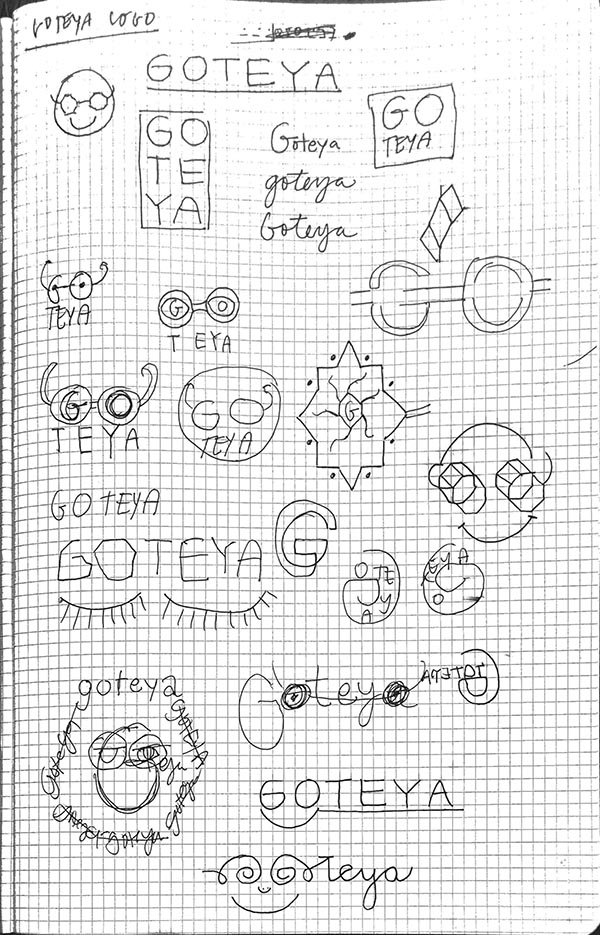 GOTEYA LOGO
GOTEYA
GO
TE
YA
Goteya
goteya
Goteya
GO
TEYA
GO
TEYA
GO
TEYA
GO
TEYA
GO
TEYA
G
GOTEYA
GOTEYA
G
goteya
Goteya
GOTEYA
Goteya
GOTEYA
Goteya